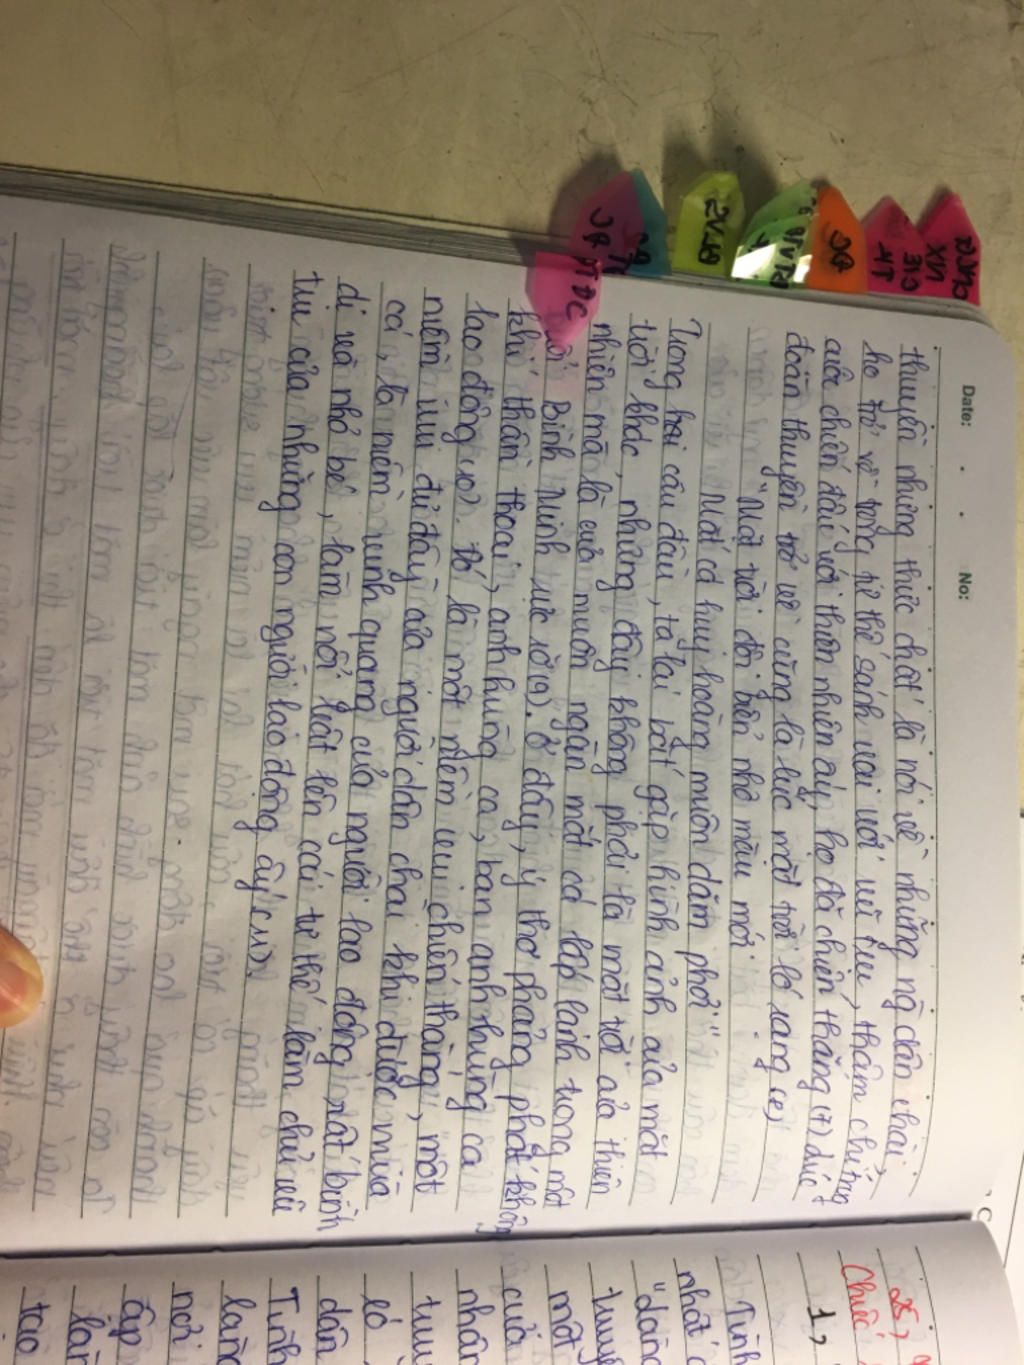 Date: No:
thuyền nhưng thực chất là nói về những ng dân chài,
họ trở về trong tư thế sánh vai với vũ trụ, thậm chí trong
cuộc chiến đấu với thiên nhiên ấy, họ đã chiến thắng (7) lúc
đoàn thuyền trở về cũng là lúc mặt trời ló rạng (8)
"Mặt trời đội biển nhô màu mới
Mắt cá huy hoàng muôn dặm phơi"
Trong hai câu đầu, ta lại bắt gặp hình ảnh của mặt
trời khác, nhưng đây không phải là mặt trời của thiên
nhiên mà là của muôn ngàn mắt cá lấp lánh trong một
Bình Minh rực rỡ (9). Ở đây, ý thơ phảng phất không
khí thần thoại, anh hùng ca, bản anh hùng ca
lao động vợi. Đó là một niềm vui chiến thắng, một
niềm vui đủ đầy của người dân chài khi được mùa
cá, là niềm vinh quang của người lao động rất bình
dị và nhỏ bé, làm nổi bật lên cái tư thế làm chủ vũ
trụ của những con người lao động ấy (11).
JB PTĐC
2VLĐ
JQ
25,
Chiếc
1,
Tình
nhất
"đằng
truy
một
của
nhân
truy
ló
dân
Tình
làng
nơi
ấp
làn
tao